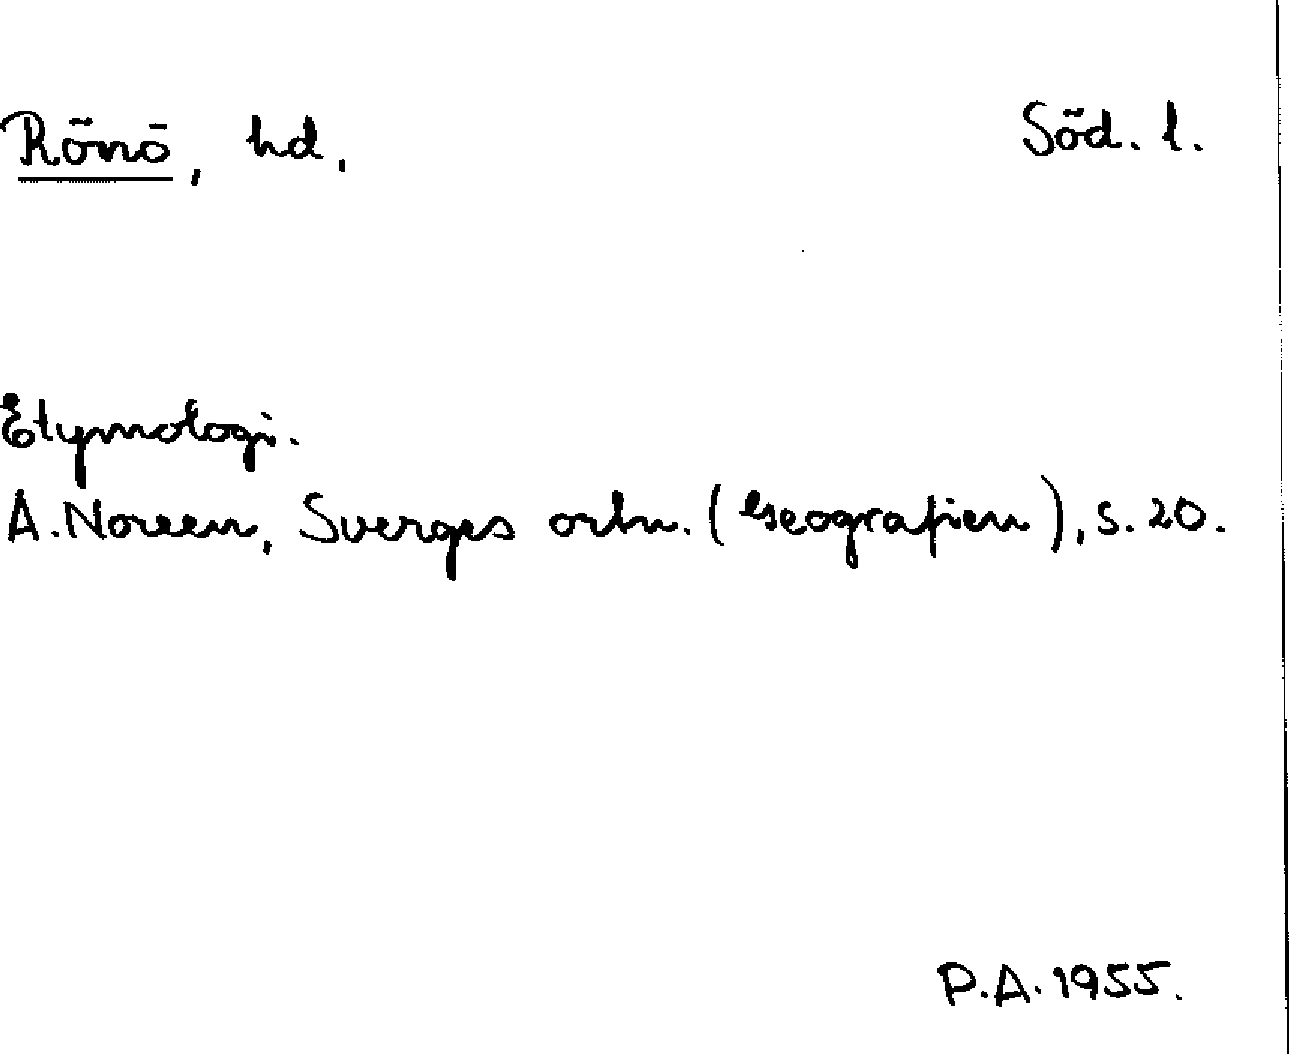 Rönö, hd. Söd. l.
Etymologi.
A. Noreen, Sverges ortn. (Geografien), s. 20.
P.A. 1955.